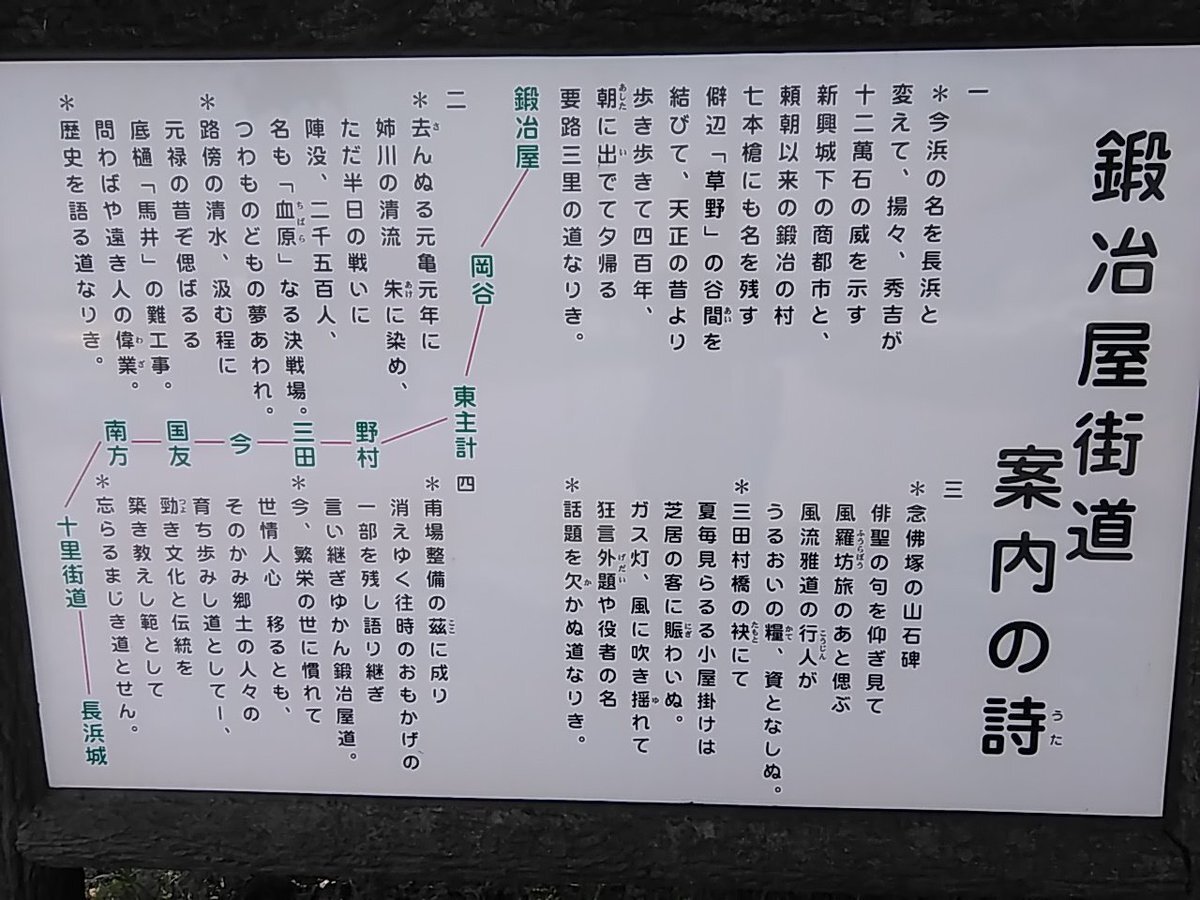 鍛冶屋街道
案内の詩
うた
一
＊今浜の名を長浜と
変えて、揚々、秀吉が
十二萬石の威を示す
新興城下の商都市と、
頼朝以来の鍛冶の村
七本槍にも名を残す
僻辺「草野」の谷間を
あい
結びて、天正の昔より
歩き歩きて四百年、
朝に出でて夕帰る
あした い
要路三里の道なりき。
二
＊去んぬる元亀元年に
さ
姉川の清流　朱に染め、
あけ
ただ半日の戦いに
陣没、二千五百人、
名も「血原」なる決戦場。
ちばら
つわものどもの夢あわれ。
＊路傍の清水、汲む程に
元禄の昔ぞ偲ばるる
底樋「馬井」の難工事。
問わばや遠き人の偉業。
わざ
＊歴史を語る道なりき。
三
＊念佛塚の山石碑
俳聖の句を仰ぎ見て
風羅坊旅のあと偲ぶ
ふうらぼう
風流雅道の行人が
こうじん
うるおいの糧、資となしぬ。
かて
＊三田村橋の袂にて
たもと
夏毎見らるる小屋掛けは
芝居の客に賑わいぬ。
にぎ
ガス灯、風に吹き揺れて
ゆ
狂言外題や役者の名
げだい
＊話題を欠かぬ道なりき。
か
四
＊甫場整備の茲に成り
ここ
消えゆく往時のおもかげの
一部を残し語り継ぎ
言い継ぎゆかん鍛冶屋道。
＊今、繁栄の世に慣れて
世情人心　移るとも、
そのかみ郷土の人々の
育ち歩みし道としてー、
勁き文化と伝統を
つよ
築き教えし範として
＊忘らるまじき道とせん。
鍛冶屋
岡谷
東主計
野村
三田
今
国友
南方
十里街道
長浜城